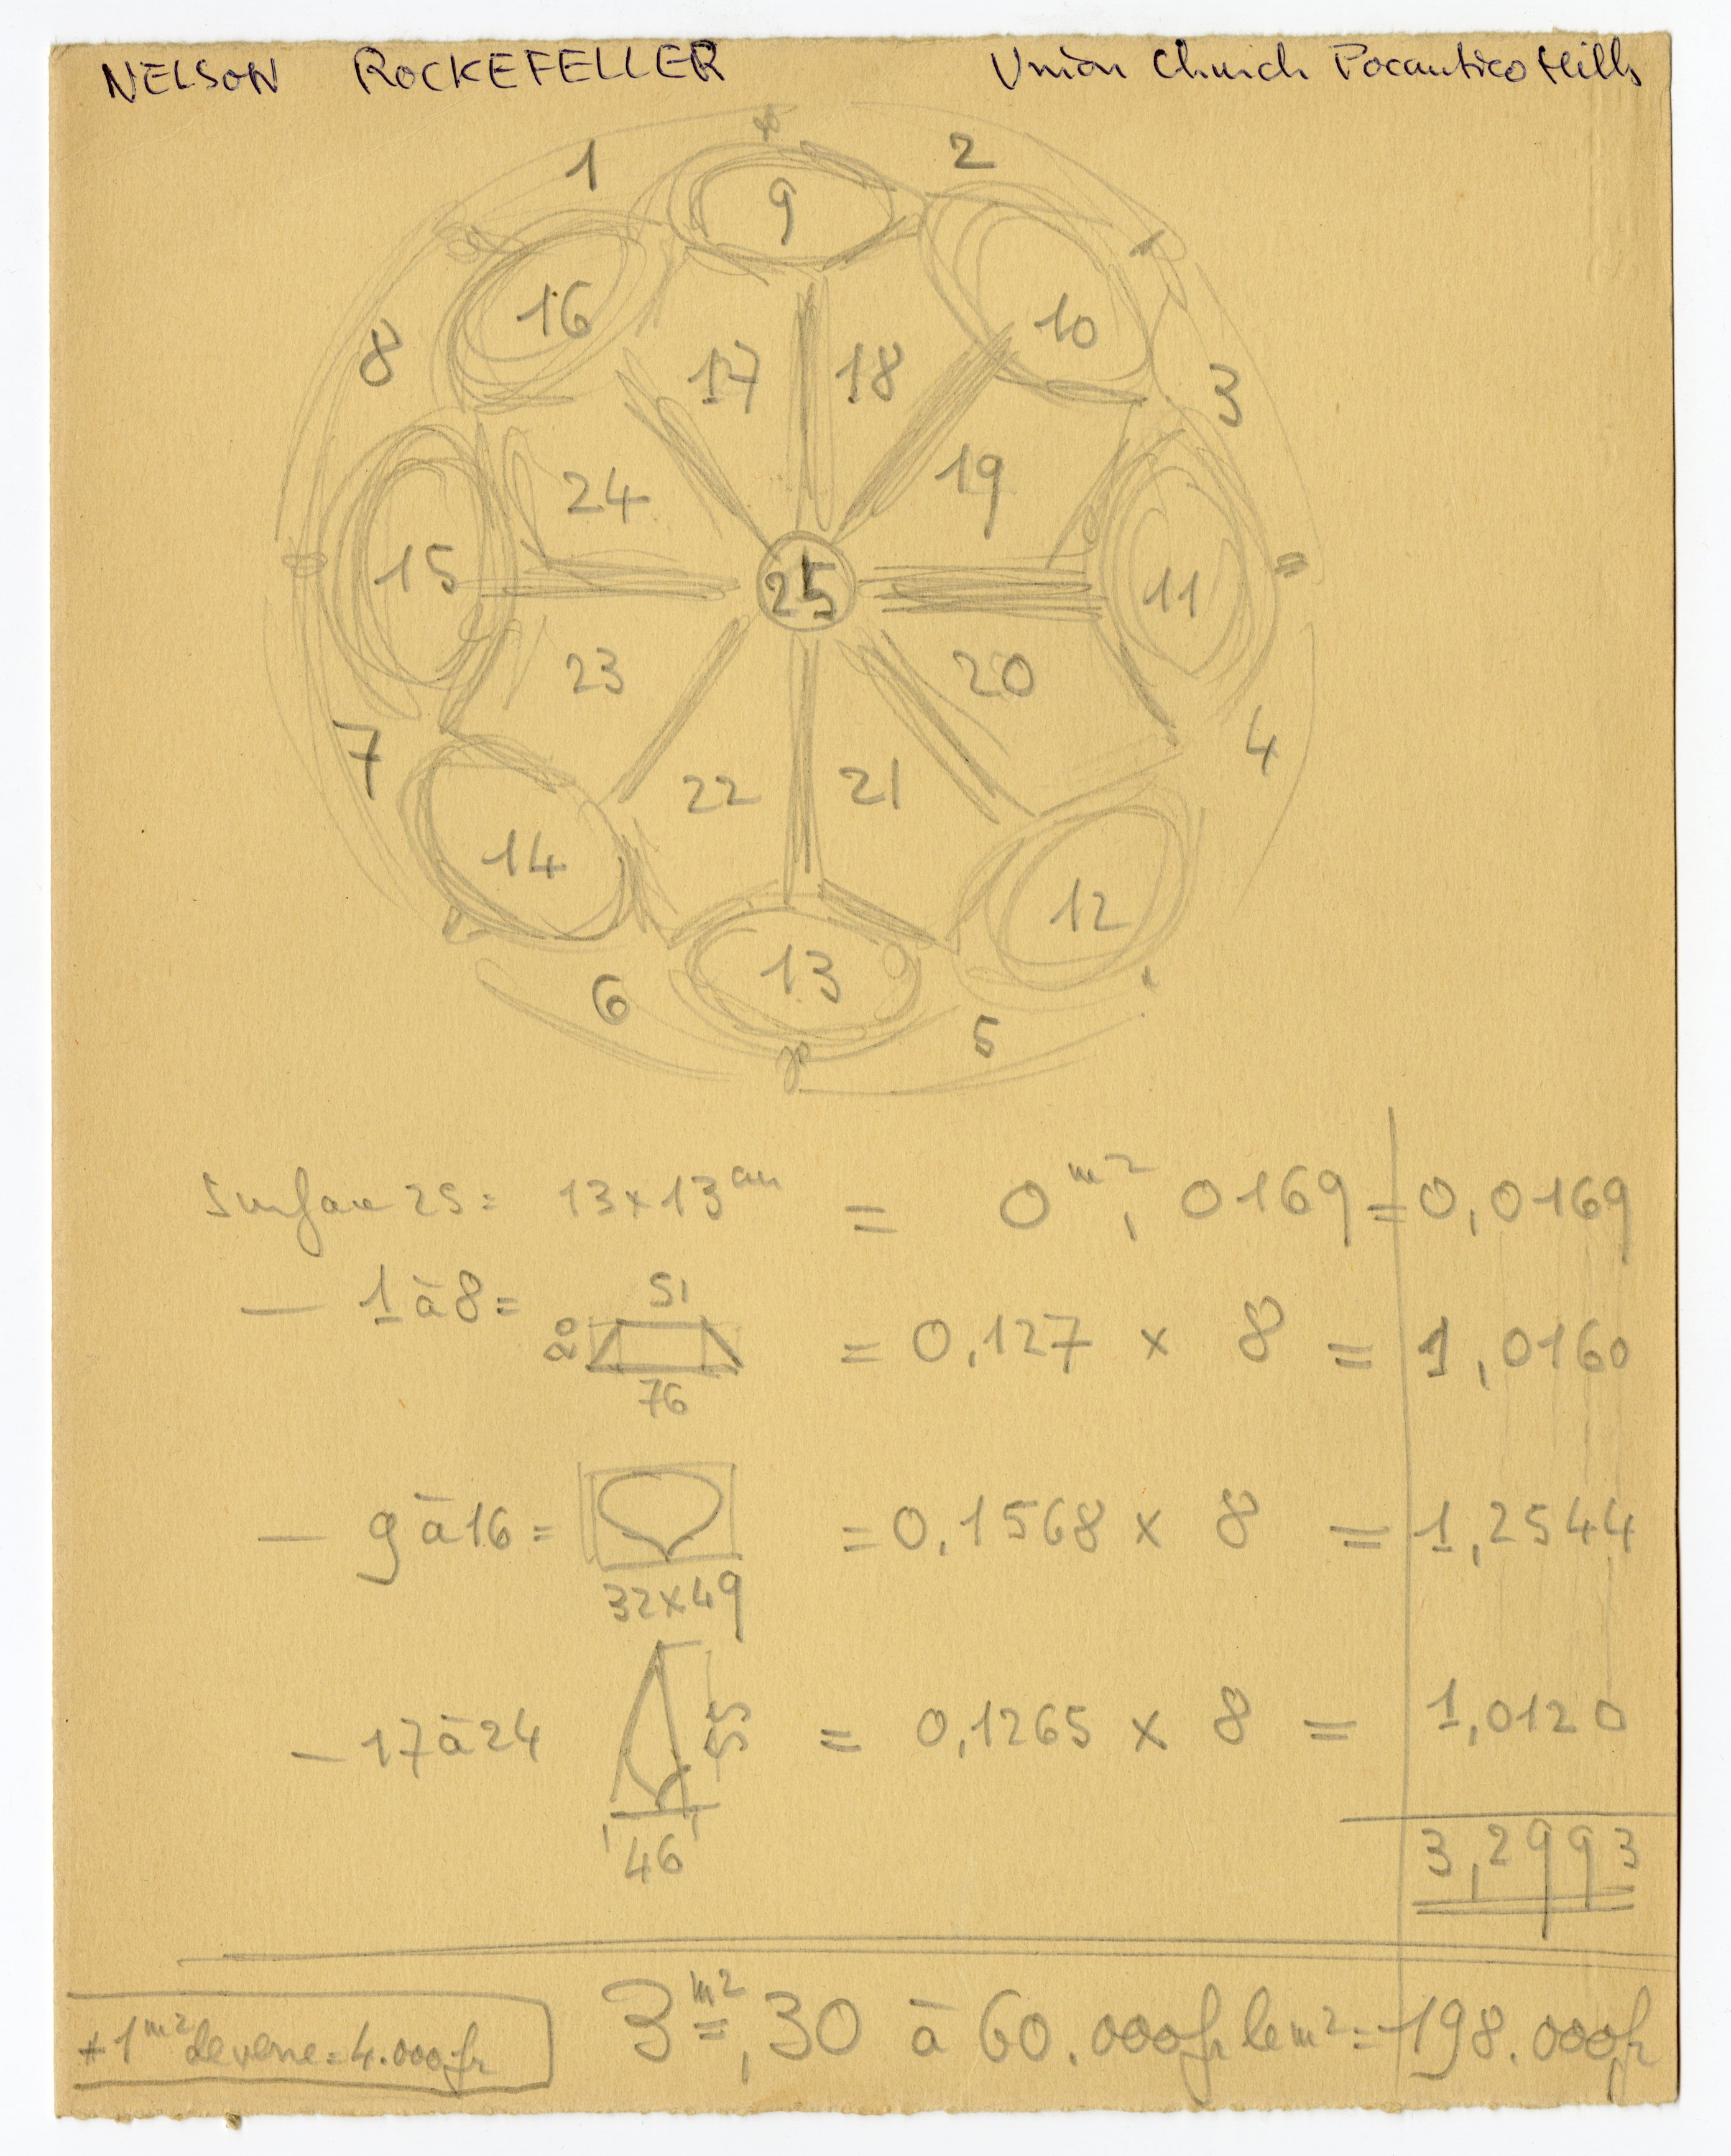 NELSON ROCKEFELLER Union Church Pocantico Hills
1 2
9
16 10
8 17 18 3
24 19
15 25 11
23 20
7 22 21 4
14 12
13
6 5
Surface 25 = 13 x 13 cm = 0 m², 0169 = 0,0169
— 1 à 8 = 51
20 = 0,127 x 8 = 1,0160
76
— 9 à 16 = = 0,1568 x 8 = 1,2544
32 x 49
— 17 à 24 55 = 0,1265 x 8 = 1,0120
46
3,2993
3 m², 30 à 60.000 fr le m² = 198.000 fr
+ 1 m² de verre = 4.000 fr